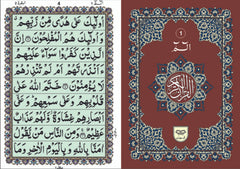 اُولٰٓئِكَ عَلٰى هُدًى مِّنْ رَّبِّهِمْ
وَاُولٰٓئِكَ هُمُ الْمُفْلِحُوْنَ ۝ اِنَّ
الَّذِيْنَ كَفَرُوْا سَوَآءٌ عَلَيْهِمْ
ءَاَنْذَرْتَهُمْ اَمْ لَمْ تُنْذِرْهُمْ
لَا يُؤْمِنُوْنَ ۝ خَتَمَ اللّٰهُ عَلٰى
قُلُوْبِهِمْ وَعَلٰى سَمْعِهِمْ وَعَلٰٓى
اَبْصَارِهِمْ غِشَاوَةٌ وَّلَهُمْ عَذَابٌ
عَظِيْمٌ ۝ وَمِنَ النَّاسِ مَنْ يَّقُوْلُ
اٰمَنَّا بِاللّٰهِ وَبِالْيَوْمِ الْاٰخِرِ وَمَا
١
الٓمّٓ